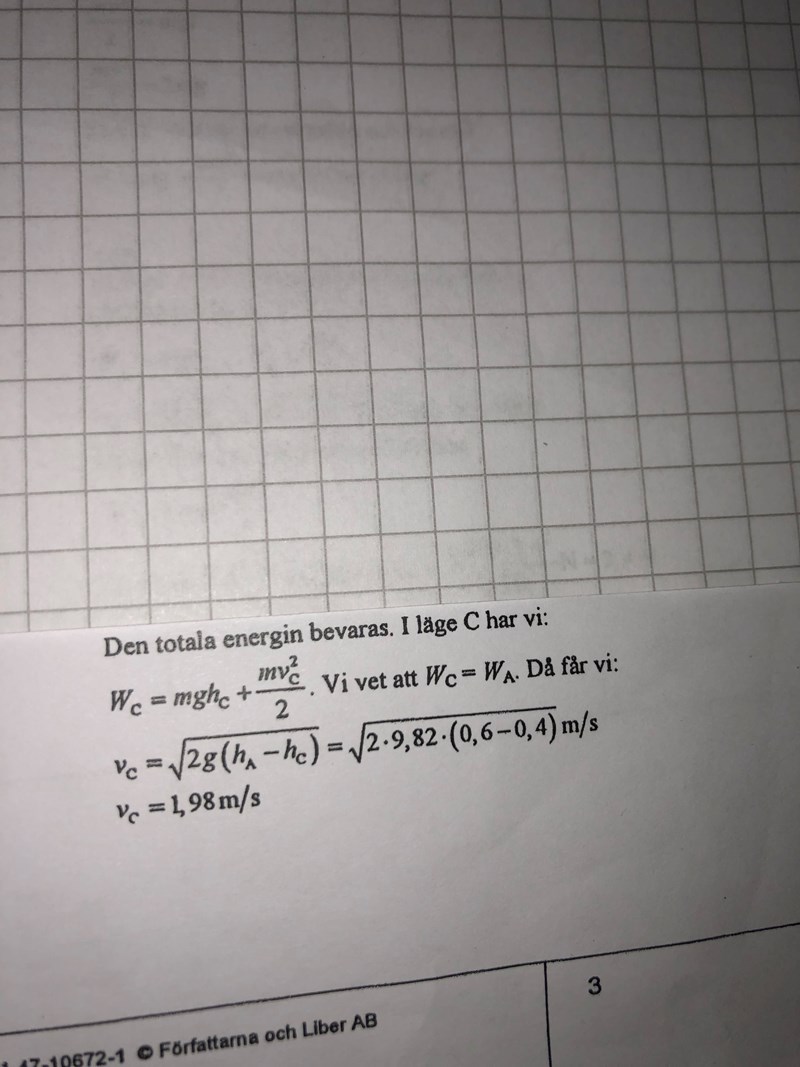 Den totala energin bevaras. I läge C har vi:
W_C = mgh_C + mv_C^2/2. Vi vet att W_C = W_A. Då får vi:
v_C = √2g(h_A − h_C) = √2·9,82·(0,6−0,4) m/s
v_C = 1,98 m/s
3
47-10672-1 © Författarna och Liber AB